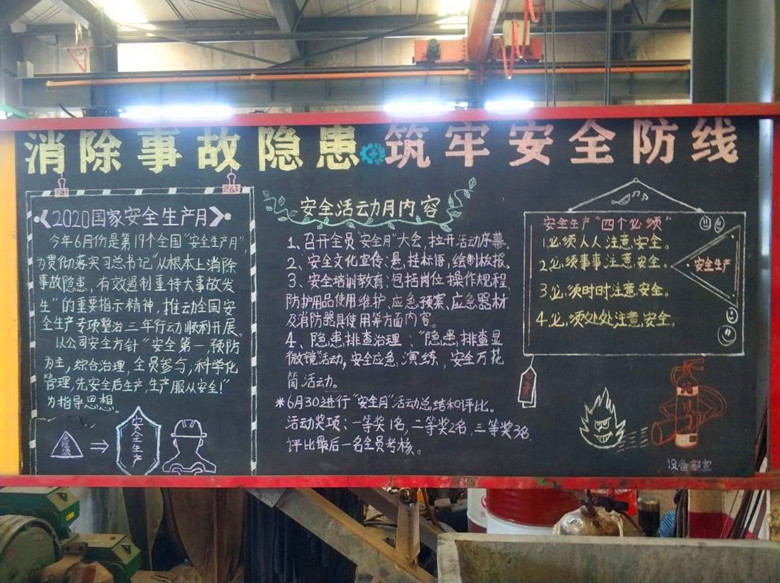 消除事故隐患 筑牢安全防线
2020国家安全生产月
今年6月份是第19个全国“安全生产月”
为贯彻落实习总书记“从根本上消除
事故隐患,有效遏制重特大事故发
生”的重要指示精神,推动全国安
全生产专项整治三年行动顺利开展。
以公司安全方针“安全第一,预防
为主,综合治理,全员参与,科学化
管理,先安全后生产,生产服从安全!”
为指导思想。
安全生产
安全活动月内容
1、召开全员“安全月”大会,拉开活动序幕。
2、安全文化宣传:悬,挂标语,绘制板报。
3、安全培训教育:包括岗位操作规程
防护用品使用维护,应急预案,应急器材
及消防器具使用等方面内容。
4、隐患排查治理:“隐患排查显
微镜活动,安全应急,演练,安全万花
筒活动。
*6月30进行“安全月”活动总结和评比。
活动奖项:一等奖1名,二等奖2名,三等奖3名
评比最后一名全员考核。
安全生产“四个必须”
1.必须人人注意安全。
2.必须事事注意安全。
3.必须时时注意安全。
4.必须处处注意安全。
安全生产